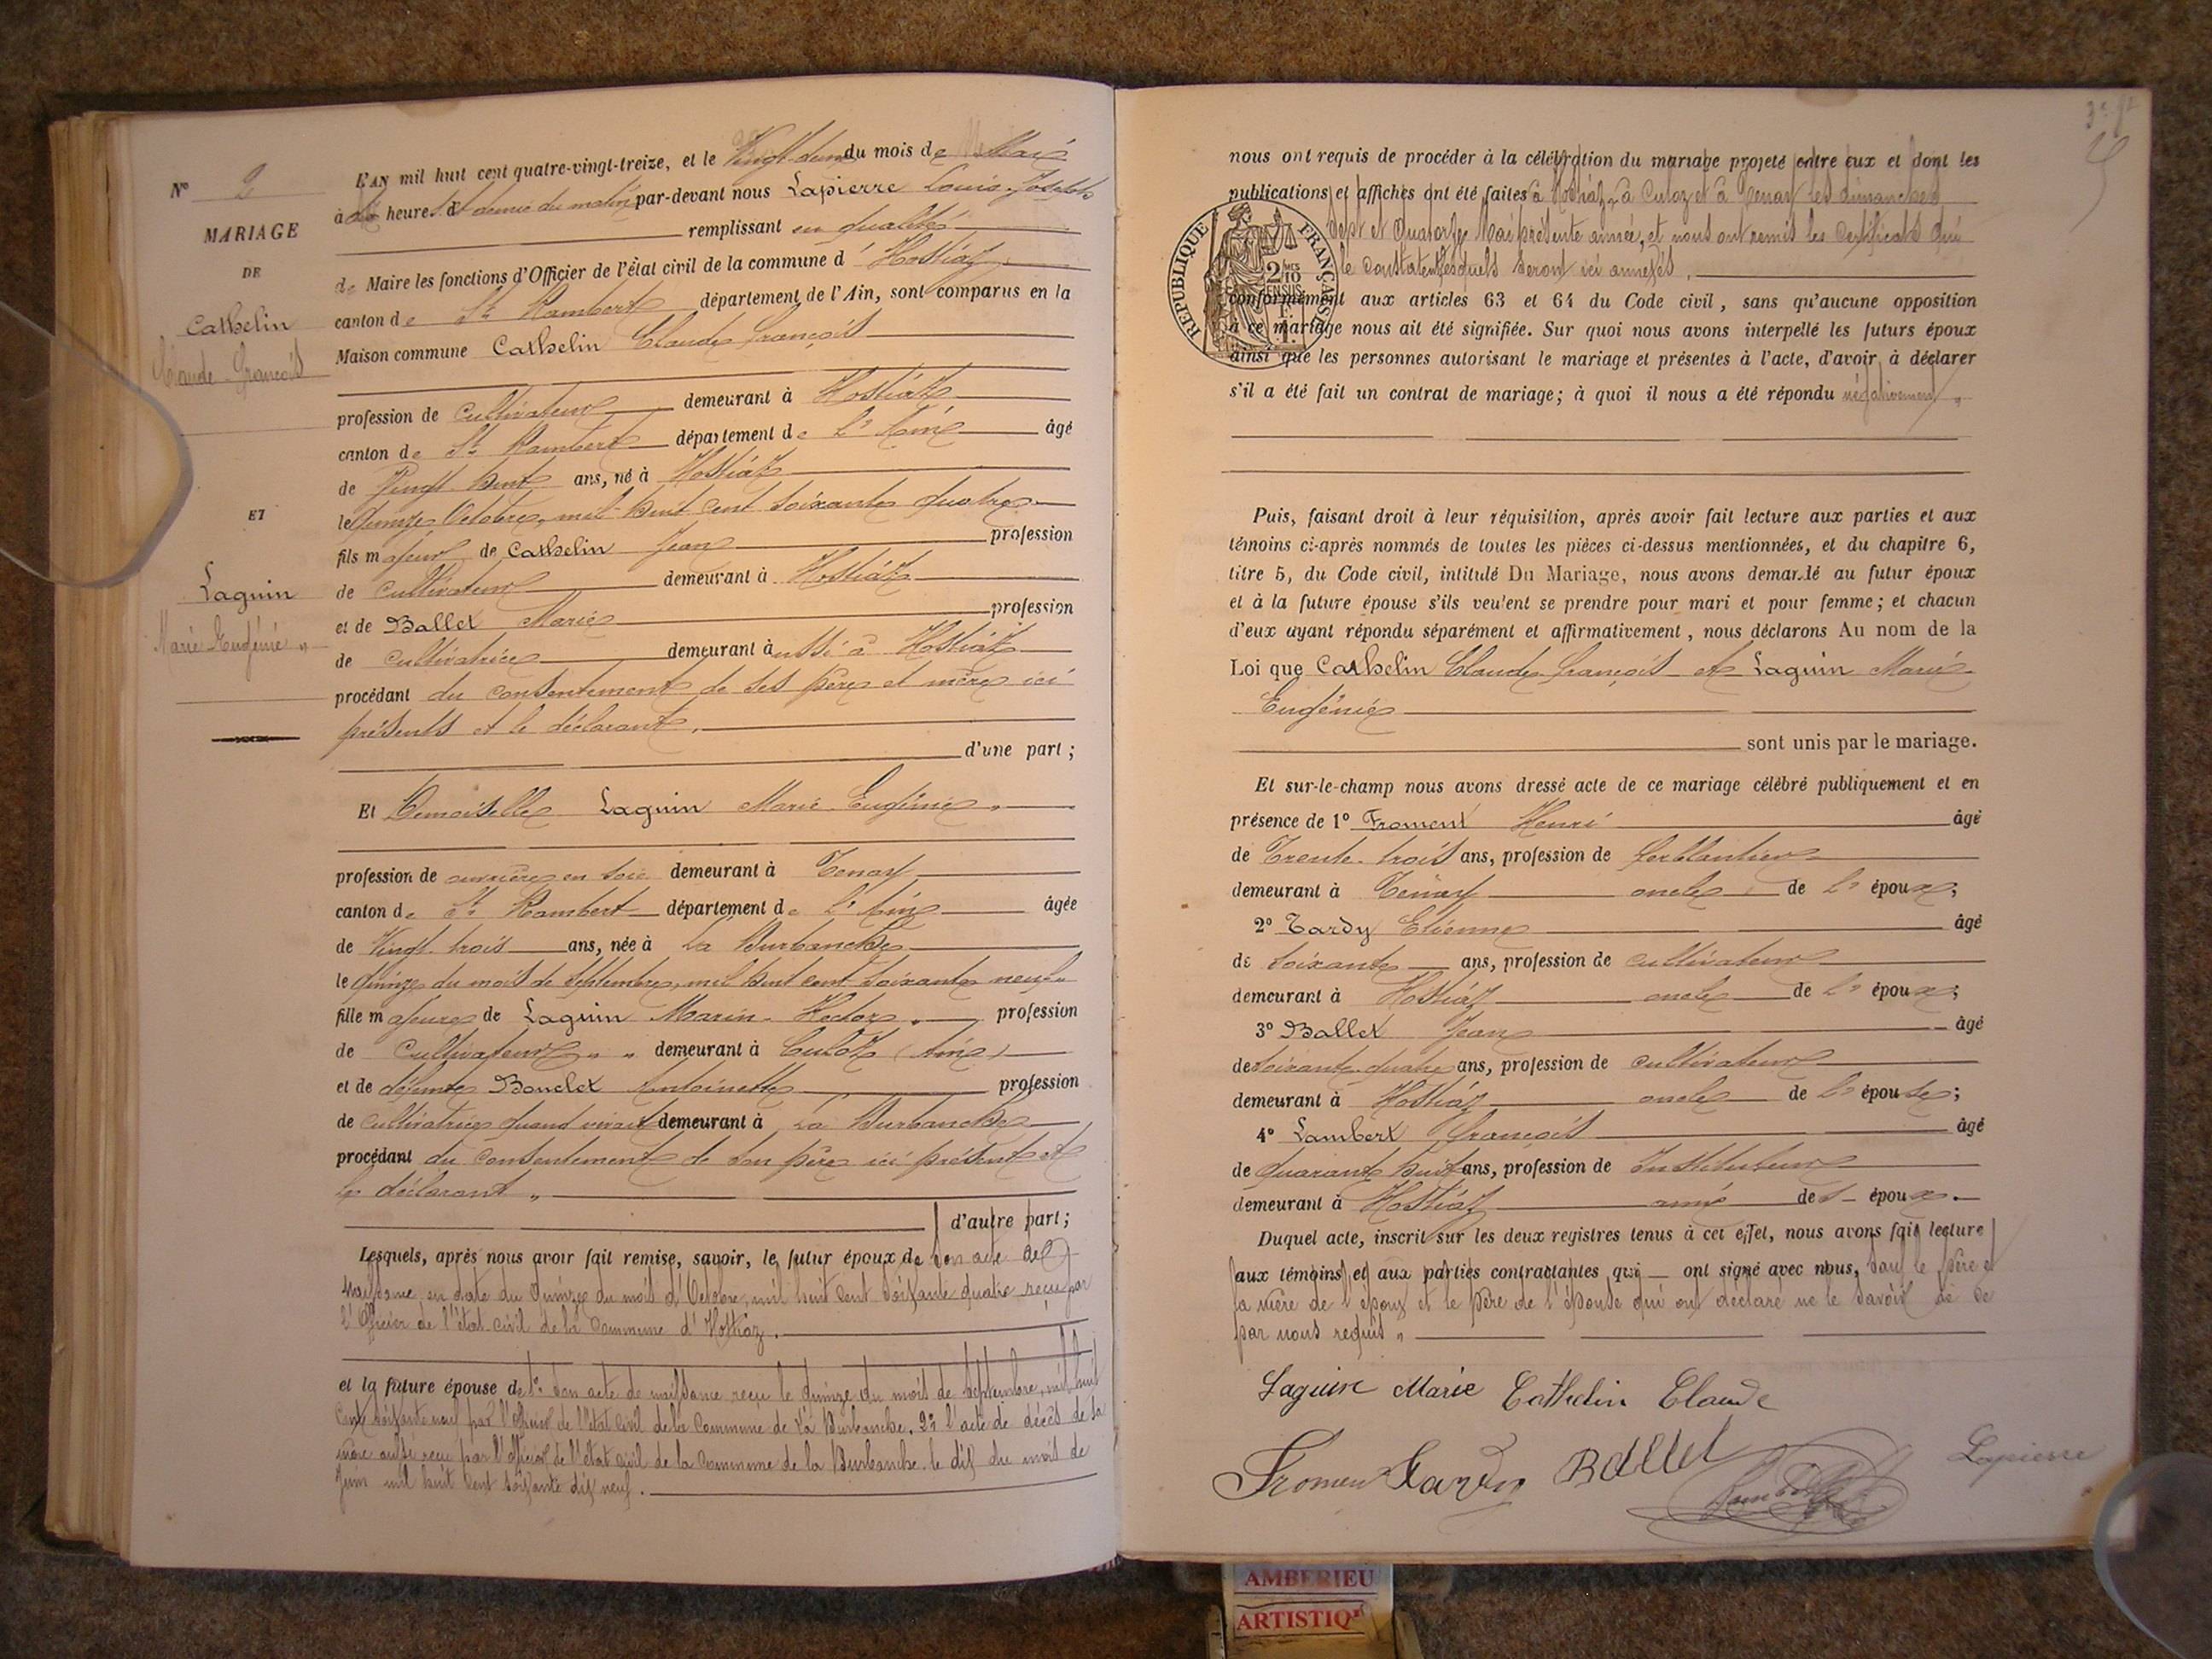 N° 2
MARIAGE
DE
Cathelin
Claude-François
ET
Laguin
Marie Eugénie "
L'AN mil huit cent quatre-vingt-treize, et le Vingt-deux du mois de Mai
à heures et demie du matin par-devant nous Lapierre Louis-Joseph
remplissant en qualité
de Maire les fonctions d'Officier de l'État civil de la commune d'Hostiaz
canton de St Rambert département de l'Ain, sont comparus en la
Maison commune Cathelin Claude François
profession de cultivateur demeurant à Hostiaz
canton de St Rambert département de L'Ain âgé
de Vingt-huit ans, né à Hostiaz
le Quinze Octobre, mil huit cent soixante quatre
fils majeur de Cathelin Jean profession
de cultivateur demeurant à Hostiaz
et de Ballet Marie profession
de cultivatrice demeurant aussi à Hostiaz
procédant du consentement de ses père et mère ici
présents et le déclarant.
d'une part;
Et Demoiselle Laguin Marie Eugénie "
profession de ouvrière en soie demeurant à Tenay
canton de St Rambert département de L'Ain âgée
de Vingt-trois ans, née à La Burbanche
le Quinze du mois de Septembre, mil huit cent soixante neuf "
fille majeure de Laguin Marin-Hector " profession
de Cultivateur " " demeurant à Culoz (Ain)
et de défunte Bonclet Antoinette profession
de cultivatrice quand vivait demeurant à La Burbanche
procédant du consentement de son père ici présent et
le déclarant "
d'autre part;
Lesquels, après nous avoir fait remise, savoir, le futur époux de son acte de
naissance en date du Quinze du mois d'Octobre, mil huit cent soixante quatre reçu par
l'officier de l'état-civil de la commune d'Hostiaz.
et la future épouse de 1° son acte de naissance reçu le quinze du mois de septembre, mil huit
cent soixante neuf par l'officier de l'état civil de la commune de La Burbanche. 2° l'acte de décès de sa
mère aussi reçu par l'officier de l'état civil de la commune de la Burbanche. le dix du mois de
Juin mil huit cent soixante dix neuf.
nous ont requis de procéder à la célébration du mariage projeté entre eux et dont les
publications et affiches ont été faites à Hostiaz, à Culoz et à Tenay les dimanches
sept et Quatorze Mai présente année, et nous ont remis les certificats qui
le constatent lesquels seront ici annexés.
RÉPUBLIQUE FRANÇAISE
2/10 EN SUS
conformément aux articles 63 et 64 du Code civil, sans qu'aucune opposition
à ce mariage nous ait été signifiée. Sur quoi nous avons interpellé les futurs époux
ainsi que les personnes autorisant le mariage et présentes à l'acte, d'avoir à déclarer
s'il a été fait un contrat de mariage; à quoi il nous a été répondu négativement "
Puis, faisant droit à leur réquisition, après avoir fait lecture aux parties et aux
témoins ci-après nommés de toutes les pièces ci-dessus mentionnées, et du chapitre 6,
titre 5, du Code civil, intitulé Du Mariage, nous avons demandé au futur époux
et à la future épouse s'ils veulent se prendre pour mari et pour femme; et chacun
d'eux ayant répondu séparément et affirmativement, nous déclarons Au nom de la
Loi que Cathelin Claude François et Laguin Marie
Eugénie
sont unis par le mariage.
Et sur-le-champ nous avons dressé acte de ce mariage célébré publiquement et en
présence de 1° Froment Henri âgé
de Trente-trois ans, profession de ferblantier
demeurant à Tenay oncle de l'époux;
2° Tardy Etienne âgé
de soixante ans, profession de cultivateur
demeurant à Hostiaz oncle de l'époux;
3° Ballet Jean âgé
de soixante-quatre ans, profession de cultivateur
demeurant à Hostiaz oncle de l'épouse;
4° Lambert François âgé
de quarante huit ans, profession de Instituteur
demeurant à Hostiaz ami de l'époux.
Duquel acte, inscrit sur les deux registres tenus à cet effet, nous avons fait lecture
aux témoins et aux parties contractantes qui ont signé avec nous, sauf le père et
la mère de l'époux et le père de l'épouse qui ont déclaré ne le savoir de ce
par nous requis "
Laguin Marie Cathelin Claude
Froment Tardy Ballet Lapierre
AMBERIEU
ARTISTIQ